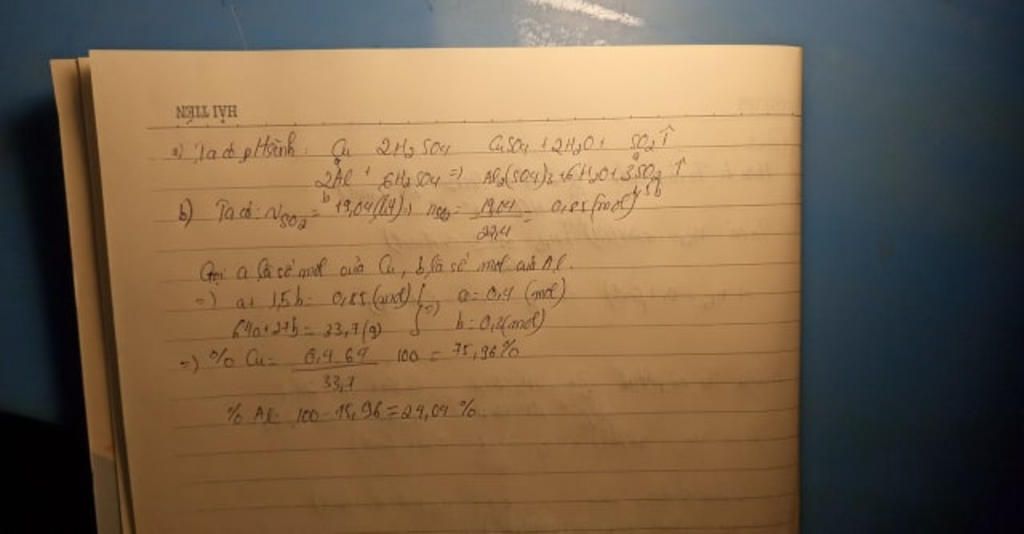 HẢI TIẾN
a) Ta có ptrình: Cu 2H2SO4 CuSO4 + 2H2O + SO2 ↑
a a
2Al + 6H2SO4 => Al2(SO4)3 + 6H2O + 3SO2 ↑
b 1,5b
b) Ta có: VSO2 = 19,04(l) => nSO2 = 19,04 / 22,4 = 0,85 (mol)
Gọi a là số mol của Cu, b là số mol của Al.
=> a + 1,5b = 0,85 (mol) => a = 0,4 (mol)
64a + 27b = 33,7 (g) b = 0,3 (mol)
=> % Cu = 0,4 . 64 / 33,7 100 = 75,96%
% Al = 100 - 75,96 = 24,04 %